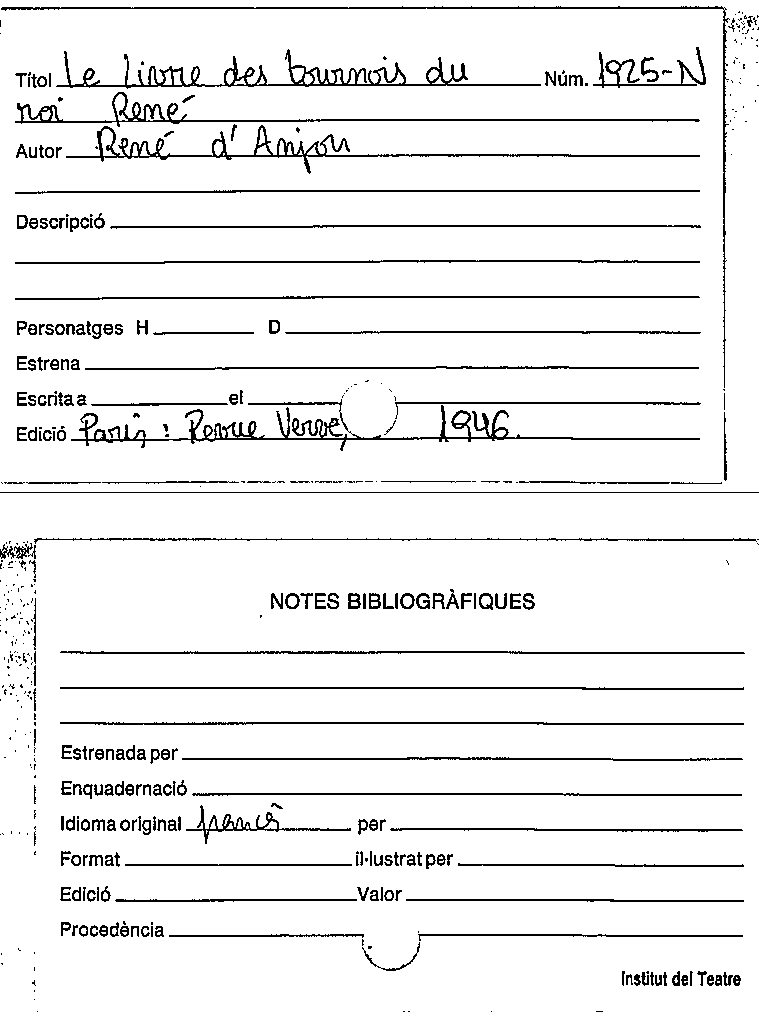 Títol Le Livre des tournois du Núm. 1925-N
roi René
Autor René d'Anjou
Descripció
Personatges H D
Estrena
Escrita a el
Edició París : Revue Verve, 1946.
NOTES BIBLIOGRÀFIQUES
Estrenada per
Enquadernació
Idioma original francès per
Format il·lustrat per
Edició Valor
Procedència
Institut del Teatre